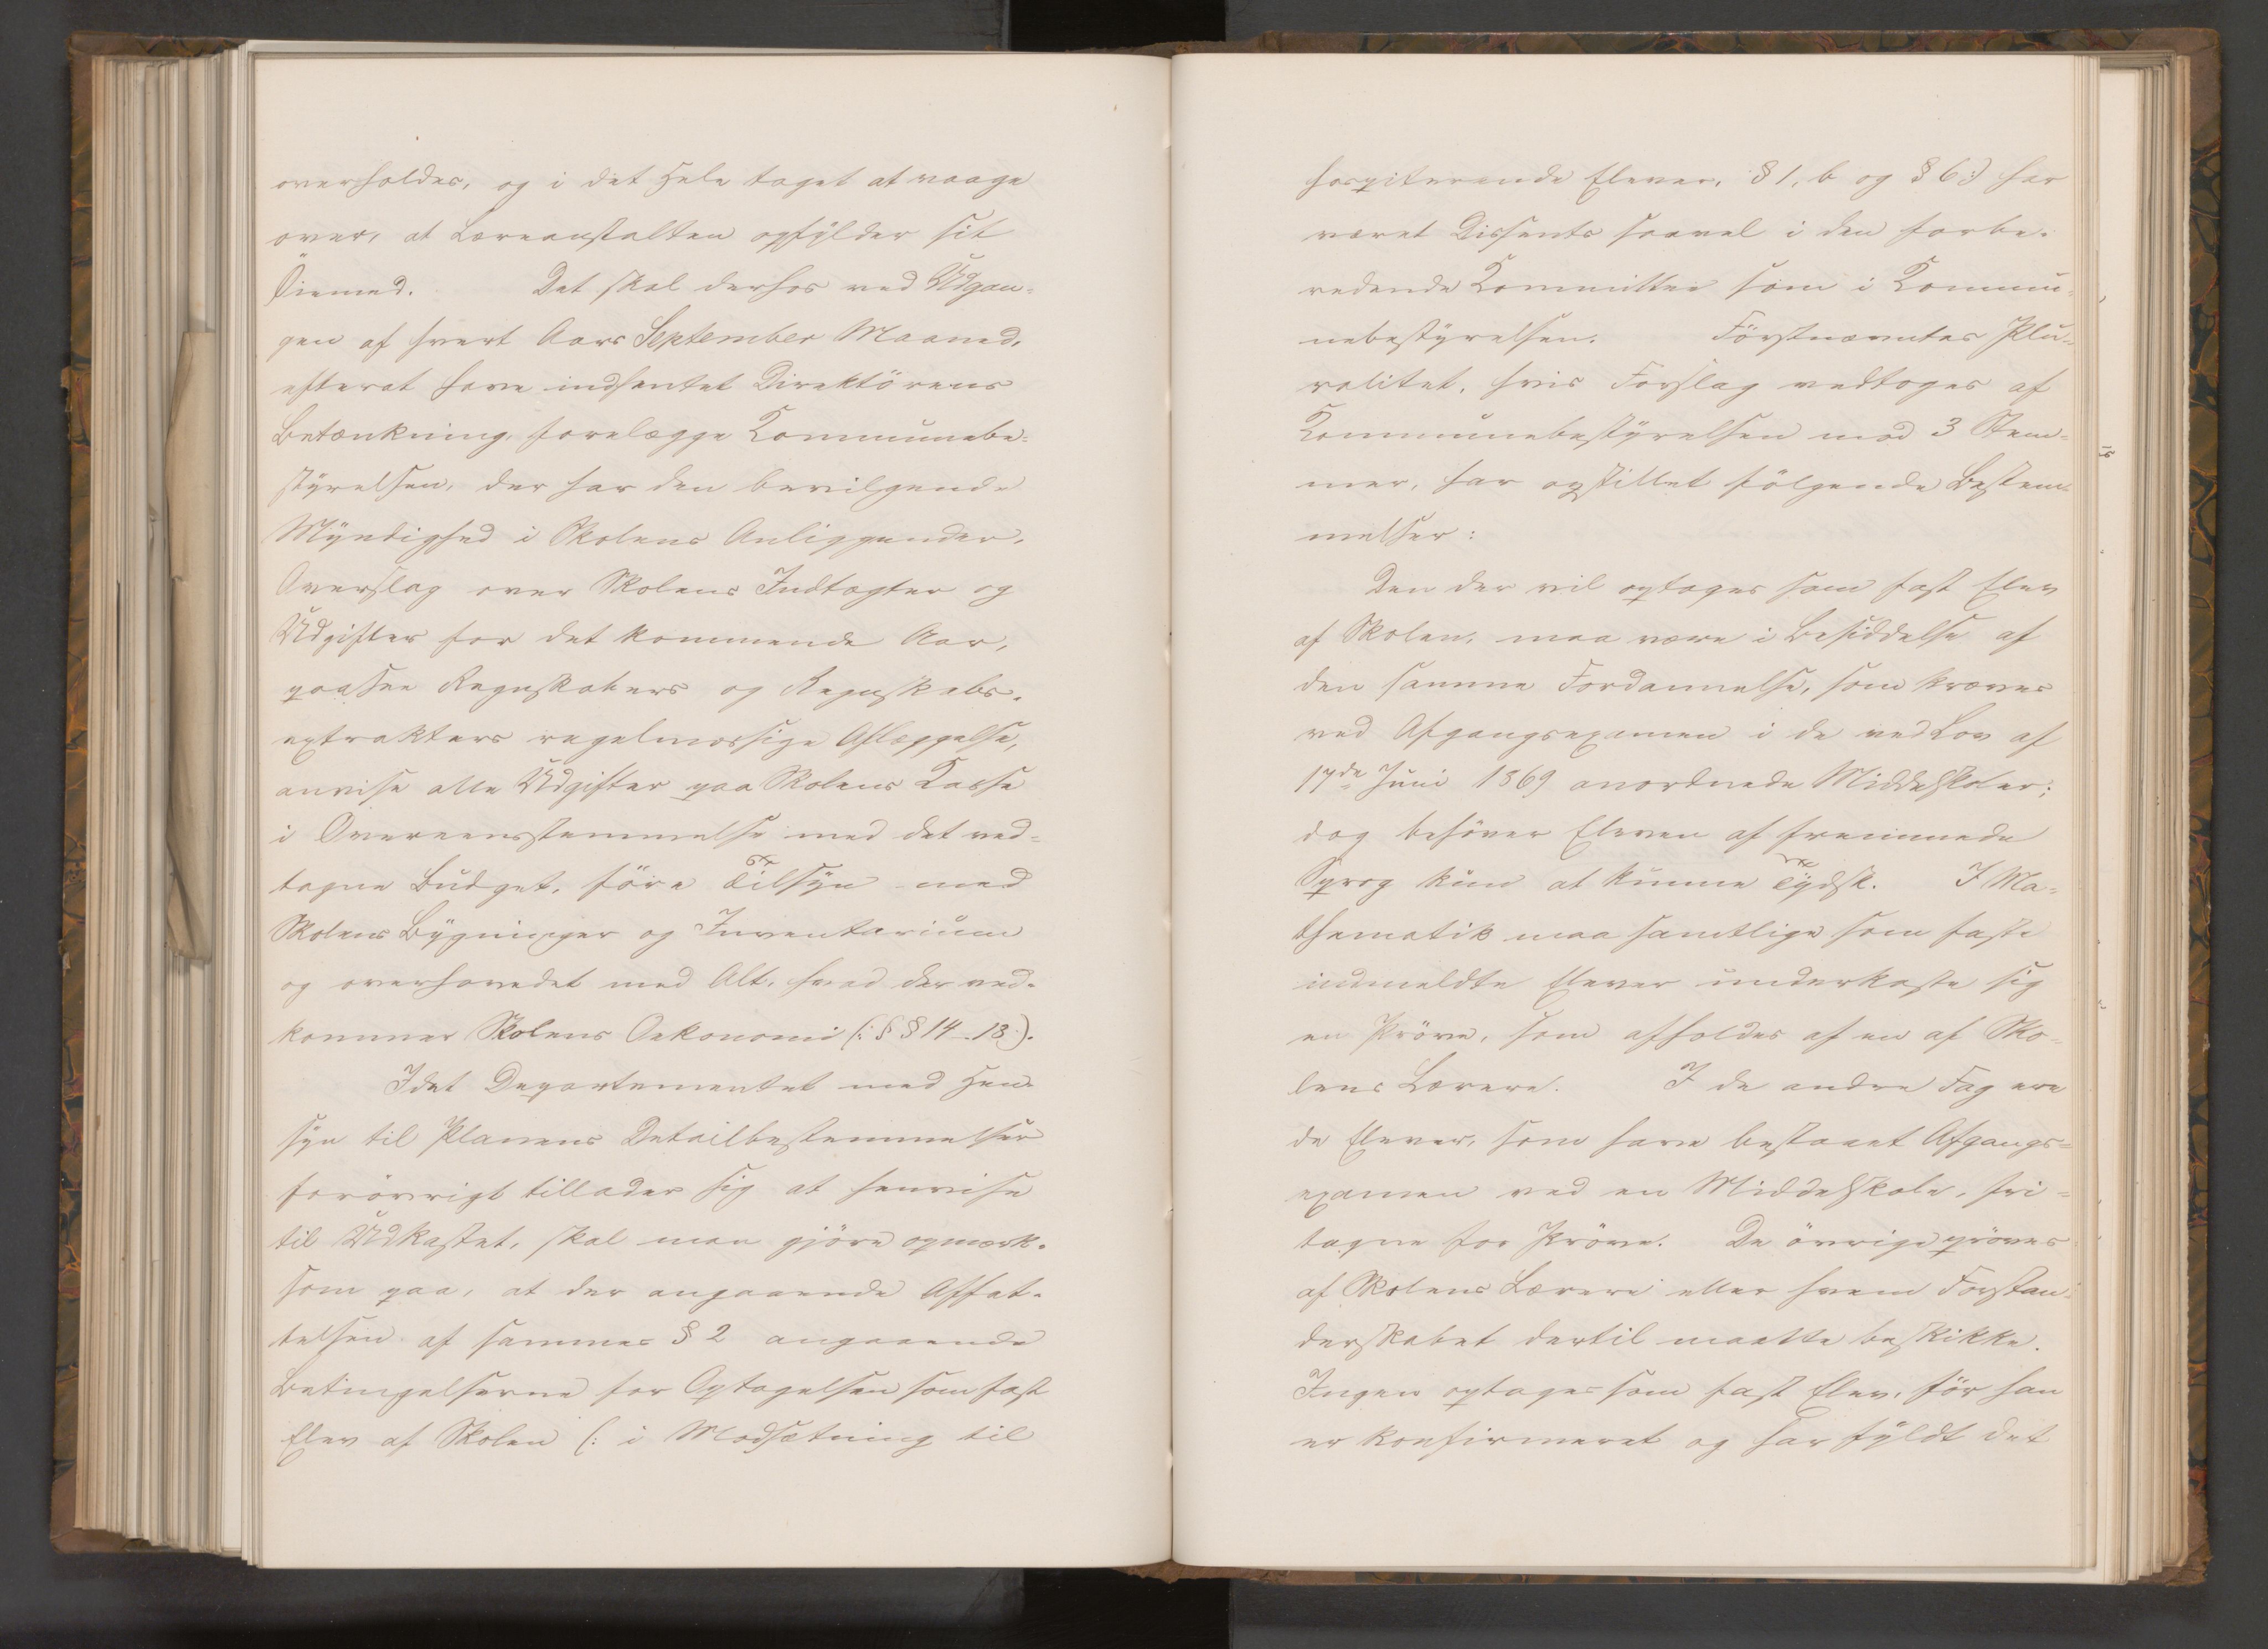 overholdes, og i det Hele taget at vaage
over, at Læreanstalten opfylder sit
Öiemed. Det skal derhos ved Udgan-
gen af hvert Aars September Maaned,
efterat have indhentet Direktörens
Betænkning, forelægge Kommunebe-
styrelsen, der har den bevilgende
Myndighed i Skolens Anliggender,
Overslag over Skolens Indtægter og
Udgifter for det kommende Aar,
paasee Regnskabers og Regnskabs-
extrakters regelmæssige Aflæggelse,
anvise alle Udgifter paa Skolens Kasse
i Overeensstemmelse med det ved-
tagne Budget, före Tilsyn med
Skolens Bygninger og Inventarium
og overhovedet med Alt, hvad der ved-
kommer Skolens Oekonomi (: §§ 14-18:).
Idet Departementet med Hen-
syn til Planens Detailbestemmelser
forövrigt tillader sig at henvise
til Udkastet, skal man gjöre opmærk-
som paa, at der angaaende Affat-
telsen af sammes § 2 angaaende
Betingelserne for Optagelsen som fast
Elev af Skolen (: i Modsætning til
hospiterende Elever, § 1, b og § 6:) har
været Dissents saavel i den forbe-
redende Kommittee som i Kommu-
nebestyrelsen. Förstnævntes Plu-
ralitet, hvis Forslag vedtoges af
Kommunebestyrelsen mod 3 Stem-
mer, har opstillet fölgende Bestem-
melser:
Den der vil optages som fast Elev
af Skolen, maa være i Besiddelse af
den samme Fordannelse, som kræves
ved Afgangsexamen i de ved Lov af
17de Juni 1869 anordnede Middelskoler;
dog behöver Eleven af fremmede
Sprog kun at kunne Tydsk. I Ma-
thematik maa samtlige som faste
indmeldte Elever underkaste sig
en Pröve, som afholdes af en af Sko-
lens Lærere. I de andre Fag ere
de Elever, som have bestaaet Afgangs-
examen ved en Middelskole, fri-
tagne for Pröve. De övrige pröves
af Skolens Lærere eller hvem Forstan-
derskabet dertil maatte beskikke.
Ingen optages som fast Elev, för han
er konfirmeret og har fyldt det